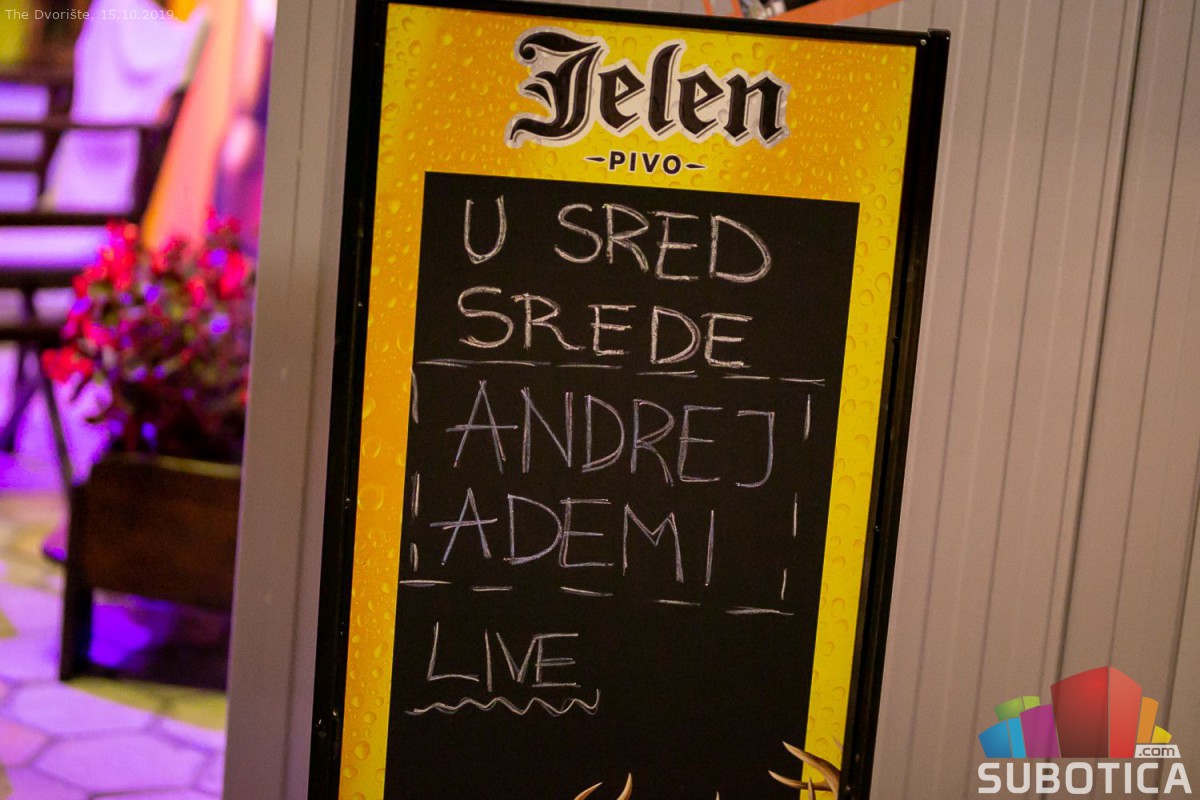 The Dvorište, 15.10.2019.
Jelen
-PIVO-
U SRED
SREDE
ANDREJ
ADEMI
LIVE
.com
SUBOTICA